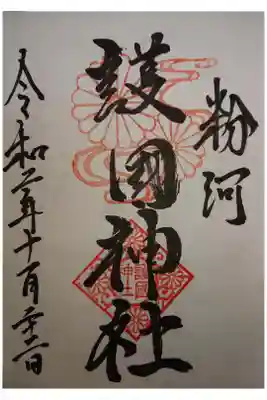 粉河
護國神社
護國神社
令和二年十一月二十二日